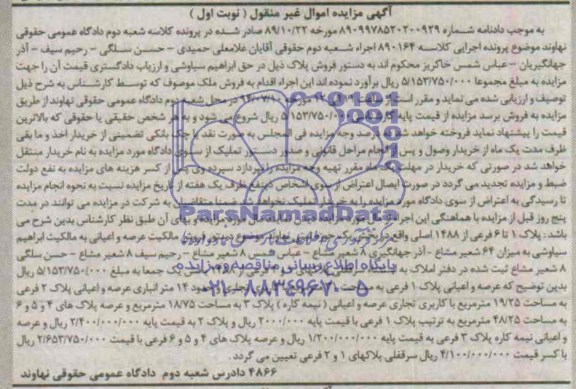 آگهی مزایده اموال غیر منقول ( نوبت اول )
به موجب دادنامه شماره ۸۹۰۹۹۷۸۵۲۰۲۰۰۹۳۹ مورخه ۸۹/۱۰/۲۲ صادر شده در پرونده کلاسه شعبه دوم دادگاه عمومی حقوقی
نهاوند موضوع پرونده اجرایی کلاسه ۸۹۰۱۶۴ اجراء شعبه دوم حقوقی آقایان غلامعلی حمیدی - حسن سلگی - رحیم سیف - آذر
جهانگیریان - عباس شمس خاکریز محکوم اند به دستور فروش پلاک ذیل در حق ابراهیم سیاوشی و ارزیاب دادگستری قیمت آن را جهت
مزایده به مبلغ مجموعا ۵/۱۵۳/۷۵۰/۰۰۰ ریال برآورد نموده اند این اجراء اقدام به فروش ملک موصوف که توسط کارشناس به شرح ذیل
توصیف و ارزیابی شده می نماید و مقرر است در محل شعبه دوم دادگاه عمومی حقوقی نهاوند از طریق
مزایده به فروش برسد مزایده از قیمت پایه ۵/۱۵۳/۷۵۰/۰۰۰ ریال شروع می شود و به هر شخص حقیقی یا حقوقی که بالاترین
قیمت را پیشنهاد نماید فروخته خواهد شد وجه مزایده فی المجلس به صورت نقد یا چک بانکی تضمینی از خریدار اخذ و ما بقی
ظرف مدت یک ماه از خریدار وصول و پس از انجام مراحل قانونی و صدور دستور تملیک از سوی دادگاه مورد مزایده به نام خریدار منتقل
خواهد شد در صورتی که خریدار در مهلت یک ماه مقرر بهیه وجه مزایده را نپردازد سپرده وی پس از کسر هزینه های مزایده به نفع دولت
ضبط و مزایده تجدید می گردد در صورت ایصال اعتراض از سوی اشخاص ذینفع ظرف یک هفته از تاریخ مزایده نسبت به نحوه انجام مزایده
تا رسیدگی به اعتراض از سوی دادگاه مورد مزایده را به خریدار تملیک نخواهد شد ضمنا متقاضیان به شرکت در مزایده می توانند در مدت
پنج روز قبل از مزایده با هماهنگی این اجرا آن طبق نظر کارشناس بدین شرح می
باشد : پلاک ۱ تا ۶ فرعی از ۱۴۸۸ اصلی واقع در مالکیت عرصه و اعیانی به مالکیت ابراهیم
سیاوشی به میزان ۶۴ شعیر مشاع - آذر جهانگیری ۸ شعیر مشاع - عباس شمس ۸ شعیر مشاع - رحیم سیف ۸ شعیر مشاع - حسن سلگی
۸ شعیر مشاع ثبت شده در دفتر املاک به جمعا به مبلغ ۵/۱۵۳/۷۵۰/۰۰۰ ریال
بدین توضیح که عرصه و اعیانی پلاک ۱ فرعی به حدود ۱۴ متر انباری عرصه و اعیانی پلاک ۲ فرعی
به مساحت ۱۹/۲۵ مترمربع با کاربری تجاری عرصه و اعیانی ( نیمه کاره ) پلاک ۳ به مساحت ۱۸/۷۵ مترمربع و عرصه پلاک های ۴ و ۵ و ۶
به مساحت ۴۸/۲۵ مترمربع به ترتیب پلاک ۱ فرعی با قیمت پایه ۲۰۰۰/۰۰۰ ریال و پلاک ۲ به قیمت پایه ۲/۴۰۰/۰۰۰/۰۰۰ ریال و عرصه
و اعیانی نیمه کاره پلاک ۳ فرعی به قیمت پایه ۱/۲۰۰/۰۰۰/۰۰۰ ریال و عرصه پلاک های ۴ و ۵ و ۶ فرعی با قیمت ۲/۶۵۳/۷۵۰/۰۰۰ ریال
با کسر قیمت ۴/۱۰۰/۰۰۰/۰۰۰ ریال سرقفلی پلاکهای ۱ و ۲ فرعی تعیین می گردد .
۴۸۶۶ دادرس شعبه دوم دادگاه عمومی حقوقی نهاوند
ParsNamadData
پایگاه اطلاع رسانی مناقصه و مزایده
۰۲۱-۸۸۳۴۹۶۷۰-۵